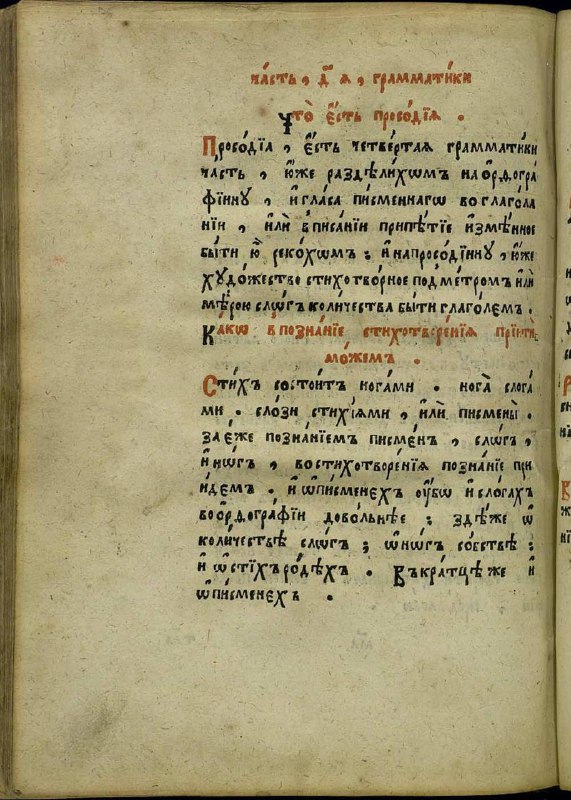 ча́сть , д҃ ѧ , грамма́тїки
Что̀ є҆́сть просѡ́дїѧ .
Просѡ́дїа , є҆́сть четве́ртаѧ грамма́тїки
ча́сть , ю҆́же раздѣли́хѡмъ на ѻ҆рѳогра
фі́йну , и҆ гла́са пи́сменнагѡ во глаго́ла
нїи , и҆лѝ в писа́нїи припѣ́тїе и҆змѣ́нное
бы́ти ю҆̀ реко́хѡмъ : и҆ на просѡді́йну , ю҆́же
худо́жество стихотво́рное под ме́тромъ и҆лѝ
мѣ́рою слѡ́гъ коли́чества бы́ти глаго́лемъ .
Ка́кѡ в позна́нїе стихотворе́нїѧ прїитѝ
мо́жемъ .
Сти́хъ состои́тъ нога́ми . нога̀ слога́
ми . сло́зи стихі́ѧми , и҆лѝ писмены̀ .
за є҆́же позна́нїемъ писме́нъ , слѡ́гъ ,
и҆ но́гъ , во стихотворе́нїѧ позна́нїе прї
и́демъ . и҆ ѡ҆ писменехъ ᲂу҆́бѡ и҆ слога́хъ
во ѻ҆рѳогра́фїи дово́лнѣе : здѣ́ же ѡ҆
коли́чествѣ слѡ́гъ ; ѡ҆ но́гъ со́бствѣ :
и҆ ѡ҆ сті́хъ ро́дѣхъ . Въкра́тцѣ же и҆
ѡ҆ писменехъ .